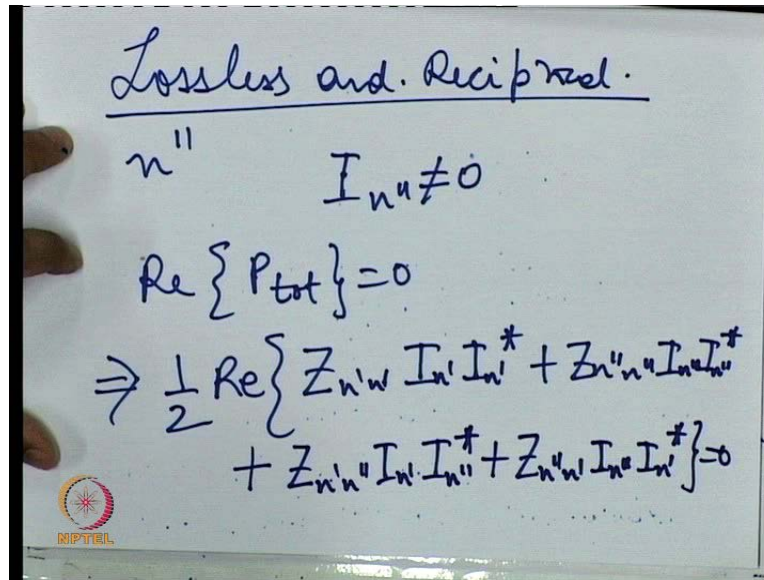 Lossless and. Reciprocal.
n''
I_{n''} ≠ 0
Re { P_{tot} } = 0
⇒ 1/2 Re { Z_{n'n'} I_{n'} I_{n'}^* + Z_{n''n''} I_{n''} I_{n''}^*
+ Z_{n'n''} I_{n'} I_{n''}^* + Z_{n''n'} I_{n''} I_{n'}^* } = 0
NPTEL